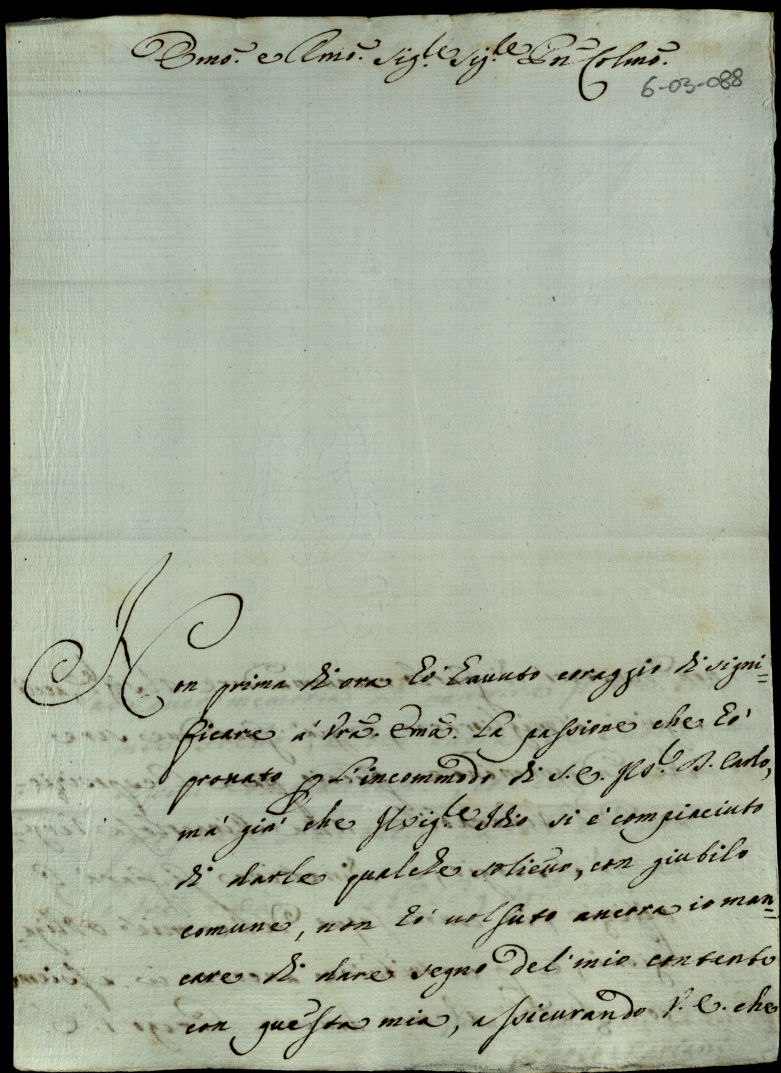 Emo. e Rmo. Sig.le Sig.le Pñ Colmo.
6-03-088
Non prima di ora hó hauuto coraggio di signi=
ficare á Vrã. Emã. La passione che hó
prouato p L'incommodo di S. E. Il S.le D. Carlo,
má giá che Il Sig.le Idio si é compiaciuto
di darle qualche solieuo, con giubilo
comune, non hó uolsuto ancora io man=
care di dare segno del mio contento
con questa mia, assicurando V. E. che